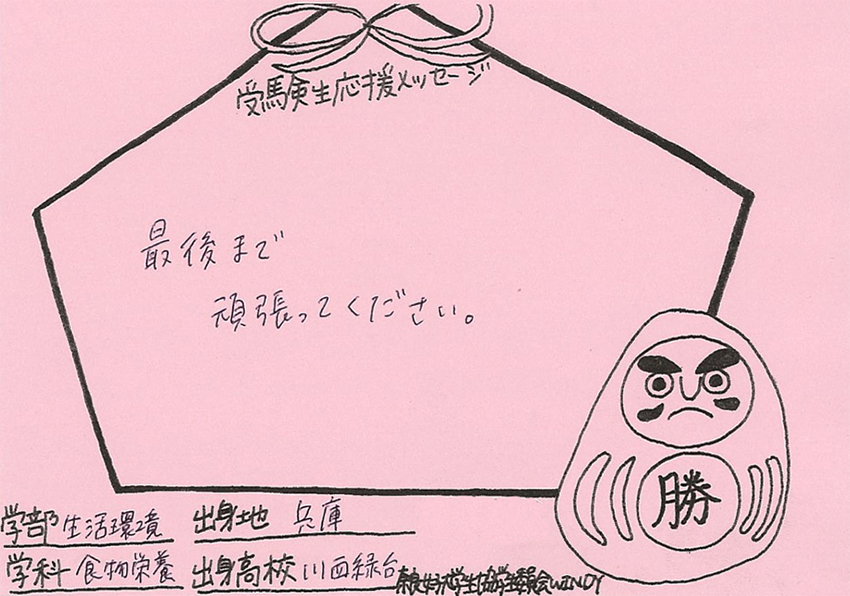 受験生応援メッセージ
最後まで
頑張ってください。
学部 生活環境 出身地 兵庫
学科 食物栄養 出身高校 川西緑台
勝